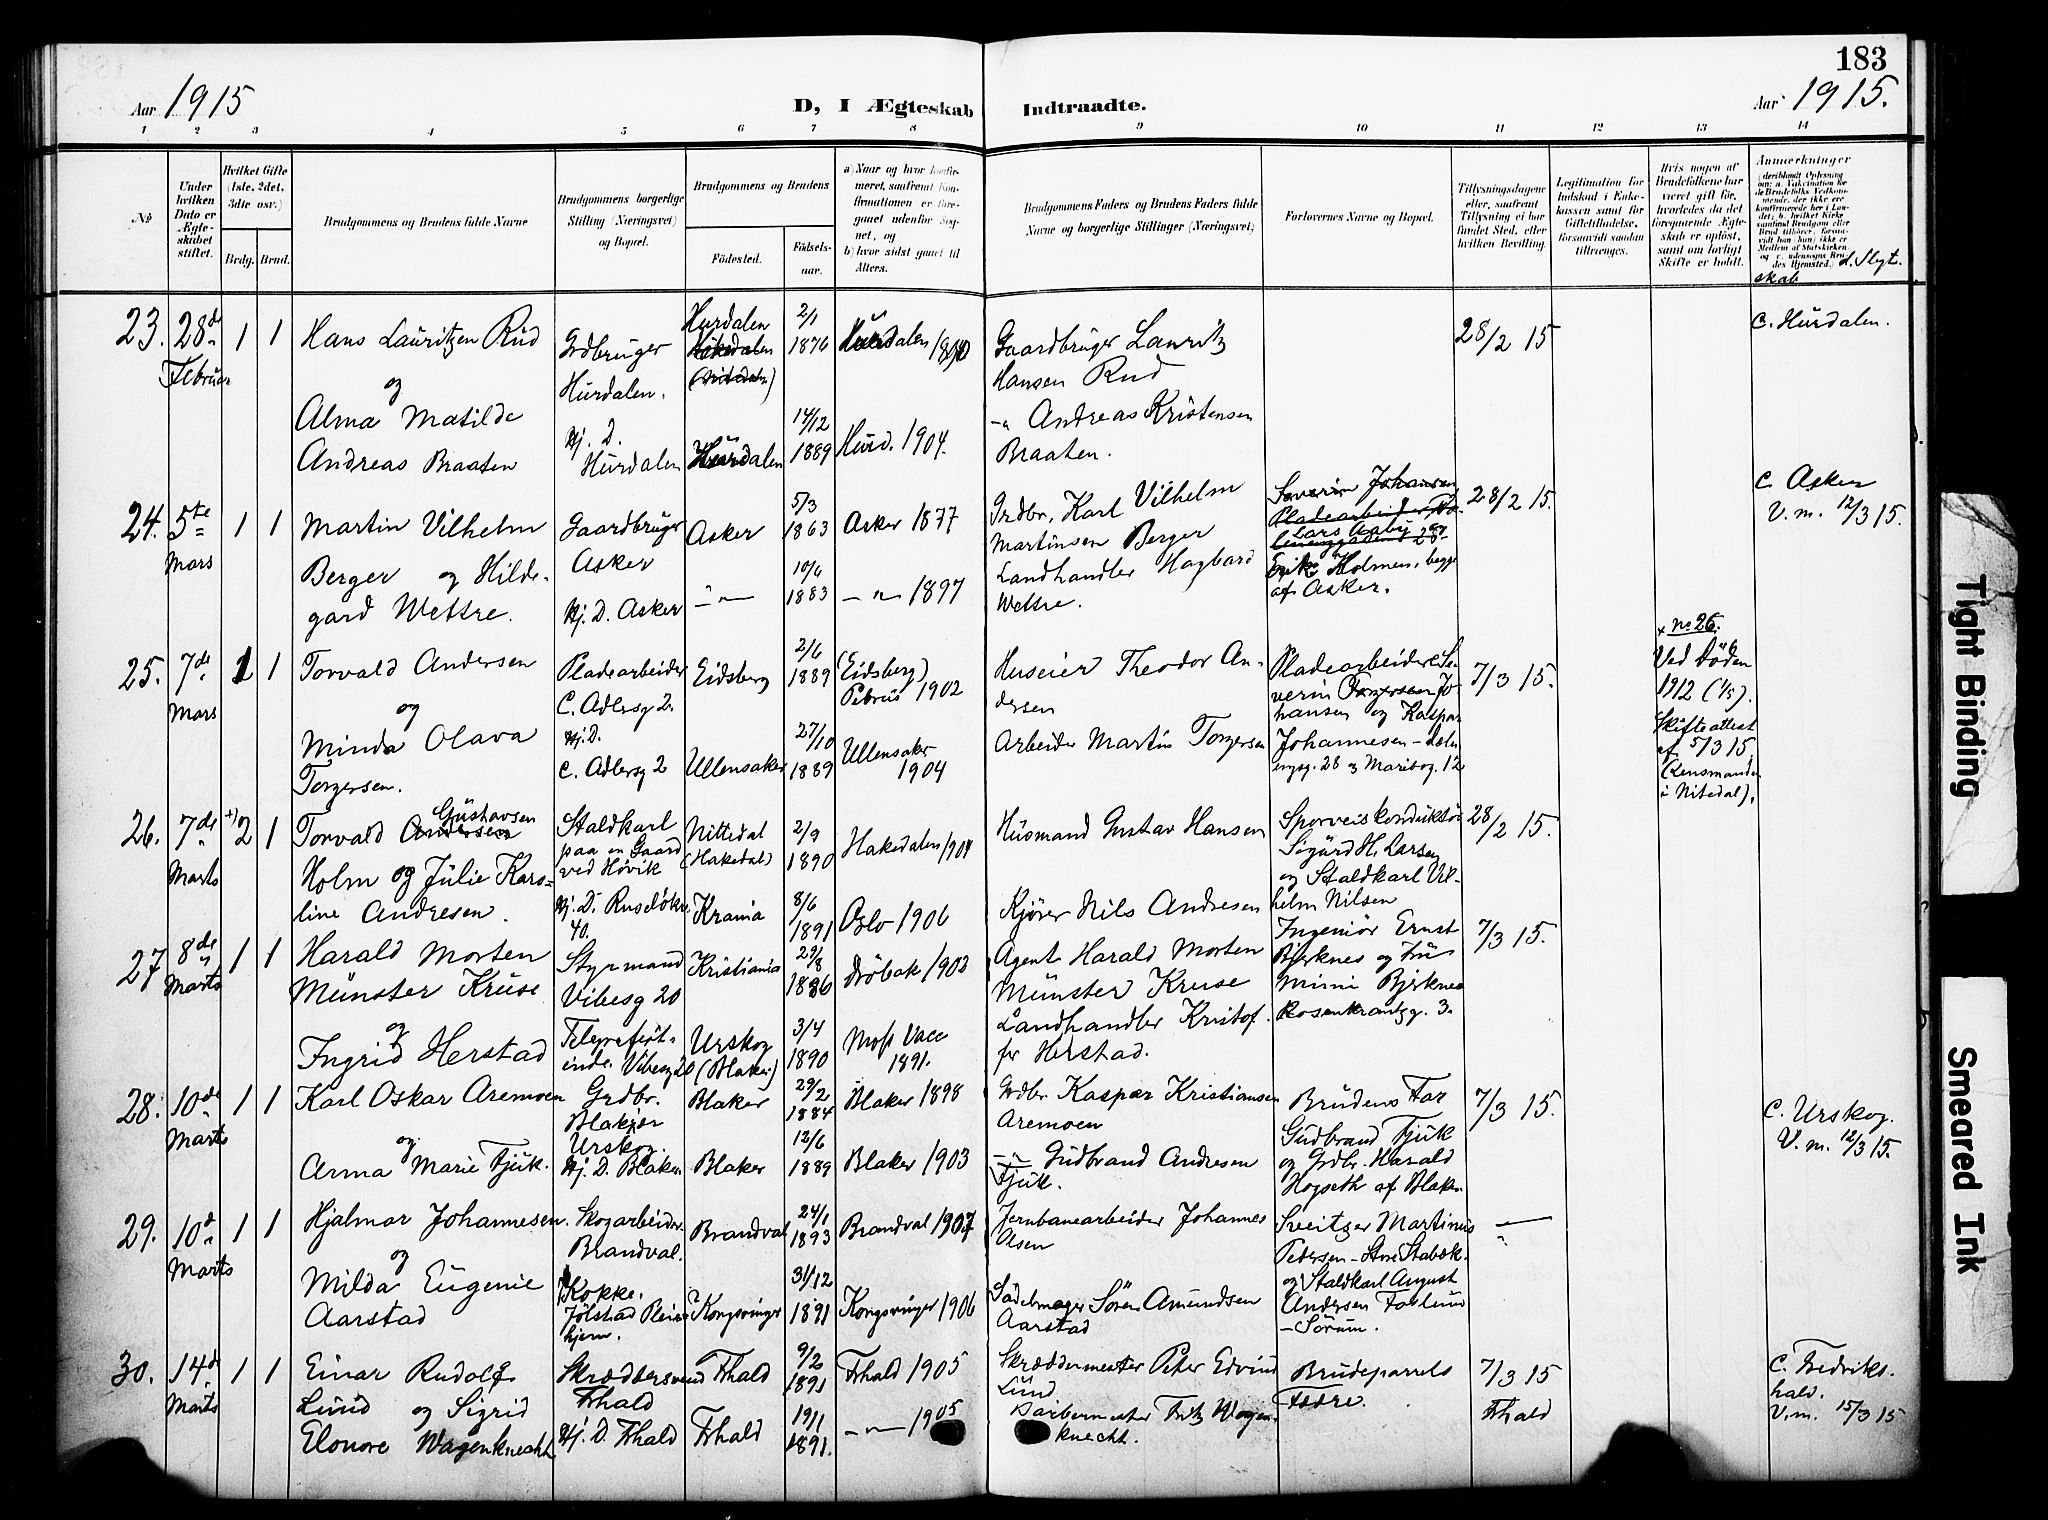 183
Aar 1915
D, I Ægteskab Indtraadte.
Aar 1915.
1 2 3 4 5 6 7 8 9 10 11 12 13 14
No
Under hvilken Dato er Ægteskabet stiftet.
Hvilket Gifte (1ste, 2det, 3die osv.)
Brdg. Brud.
Brudgommens og Brudens fulde Navne
Brudgommens borgerlige Stilling (Næringsvei) og Bopæl.
Brudgommens og Brudens
Födested. Födselsaar.
a) Naar og hvor konfirmeret, saafremt Konfirmationen er foregaaet udenfor Sognet, og
b) hvor sidst gaaet til Alters.
Brudgommens Faders og Brudens Faders fulde Navne og borgerlige Stillinger (Næringsvei)
Forlovernes Navne og Bopæl.
Tillysningsdagene eller, saafremt Tillysning ei har fundet Sted, efter hvilken Bevilling.
Legitimation for Indskud i Enkekassen samt for Giftetilladelse, forsaavidt saadan tiltrænges.
Hvis nogen af Brudefolkene har været gift før, hvorledes da det foregaaende Ægteskab er opløst, samt om lovligt Skifte er holdt.
Anmerkninger
d. Slegtskab
23. 28de Februar 1 1
Hans Lauritzen Rud
og
Alma Matilde
Andreas Braaten
Grdbruger
Hurdalen.
Hj. D.
Hurdalen
Hurdalen
2/1 1876
Hurdalen
14/12 1889
Hurd. 1904.
Gaardbruger Lauritz
Hansen Rud
-"- Andreas Kristensen
Braaten.
28/2 15
c. Hurdalen.
24. 5te Mars 1 1
Martin Vilhelm
Berger og Hilde-
gard Wettre.
Gaardbruger
Asker
Hj. D. Asker
Asker
5/3 1863
Asker 1877
-"-
10/6 1883
-"- 1897
Grdbr. Karl Vilhelm
Martinsen Berger
Landhandler Hagbard
Wettre.
Severin Johansen
Lars Aaby
Erik Holmen, begge
af Asker.
28/2 15.
c. Asker
V.m. 12/3 15.
25. 7de Mars 1 1
Torvald Andersen
og
Minda Olava
Torgersen.
Pladearbeider
C. Adlersg 2.
Hj. D.
C. Adlersg 2
Eidsberg
2/6 1889
(Eidsberg)
Petrus 1902
Ullensaker
27/10 1889
Ullensaker
1904
Huseier Theodor An-
dersen
Arbeider Martin Torgersen
Pladearbeider Se-
verin Torgersen Jo-
hansen og Kaspar
Johannesen -
engsg. 28 og Maribog. 12
7/3 15.
x no 26.
Ved Døden
1912 (1/5).
Skifteattest
af 5/3 15.
(Lensmanden
i Nitedal).
26. 7de Marts +) 2 1
Gustavsen
Torvald Andersen
Holm og Julie Karo-
line Andresen.
Staldkarl
paa en Gaard
ved Høvik
Hj. D. Ruseløkv.
40.
Nittedal
(Hakedal)
2/9 1890
Hakedalen 1904
Krania
8/6 1891
Oslo 1906
Husmand Gustav Hansen
Kjører Nils Andresen
Sporveiskonduktør
Sigurd H. Larsen
og Staldkarl Vil-
helm Nilsen
28/2 15.
27 8de Marts 1 1
Harald Morten
Münster Kruse
og
Ingrid Herstad
Styrmand
Vibesg 20
Telegrafist-
inde. Vibesg 20
Kristiania
29/8 1886
Drøbak 1902
Urskog
(Blaker)
3/4 1890
Moss
1891.
Agent Harald Morten
Münster Kruse
Landhandler Kristof-
fer Herstad.
Ingeniør Ernst
Bjerknes og Fru
Mimi Bjerknes
Rosenkrantzg. 3.
7/3 15.
28. 10de Marts 1 1
Karl Oskar Aremoen
og
Anna Marie Fjuk.
Grdbr.
Blakjer
Urskog.
Hj. D. Blaker
Blaker
29/2 1884
Blaker 1898
Blaker
12/6 1889
Blaker 1903
Grdbr. Kaspar Kristiansen
Aremoen
-"- Gudbrand Andresen
Fjuk.
Brudens Far
Gudbrand Fjuk
og Grdbr. Harald
Hogseth af Blaker.
7/3 15.
c. Urskog.
V.m. 12/3 15.
29. 10de Marts 1 1
Hjalmar Johannesen.
og
Milda Eugenie
Aarstad
Skogarbeider
Brandval.
Kokke.
Jølstad Pleie-
hjem.
Brandval
24/1 1893
Brandval 1907
Kongsvinger
31/12 1891
Kongsvinger 1906
Jernbanearbeider Johannes
Olsen
Sadelmager Søren Amundsen
Aarstad
Sveitser Martinus
Pedersen - Store Stabæk.
og Staldkarl August
Andersen
- Sørum.
-"-
30. 14de Marts 1 1
Einar Rudolf
Lund og Sigrid
Elonore Wagenknecht
Skræddersvend
Frhald
Hj. D. Frhald
Frhald
9/2 1891
Frhald 1905
Frhald
19/1 1891.
-"- 1905
Skræddermester Peter Edvind
Lund
Barbermester Fritz Wagen-
knecht.
Brudeparrets
Fædre.
7/3 15
Frhald
c. Fredriks-
hald.
V.m. 15/3 15
Tight Binding
Smeared Ink